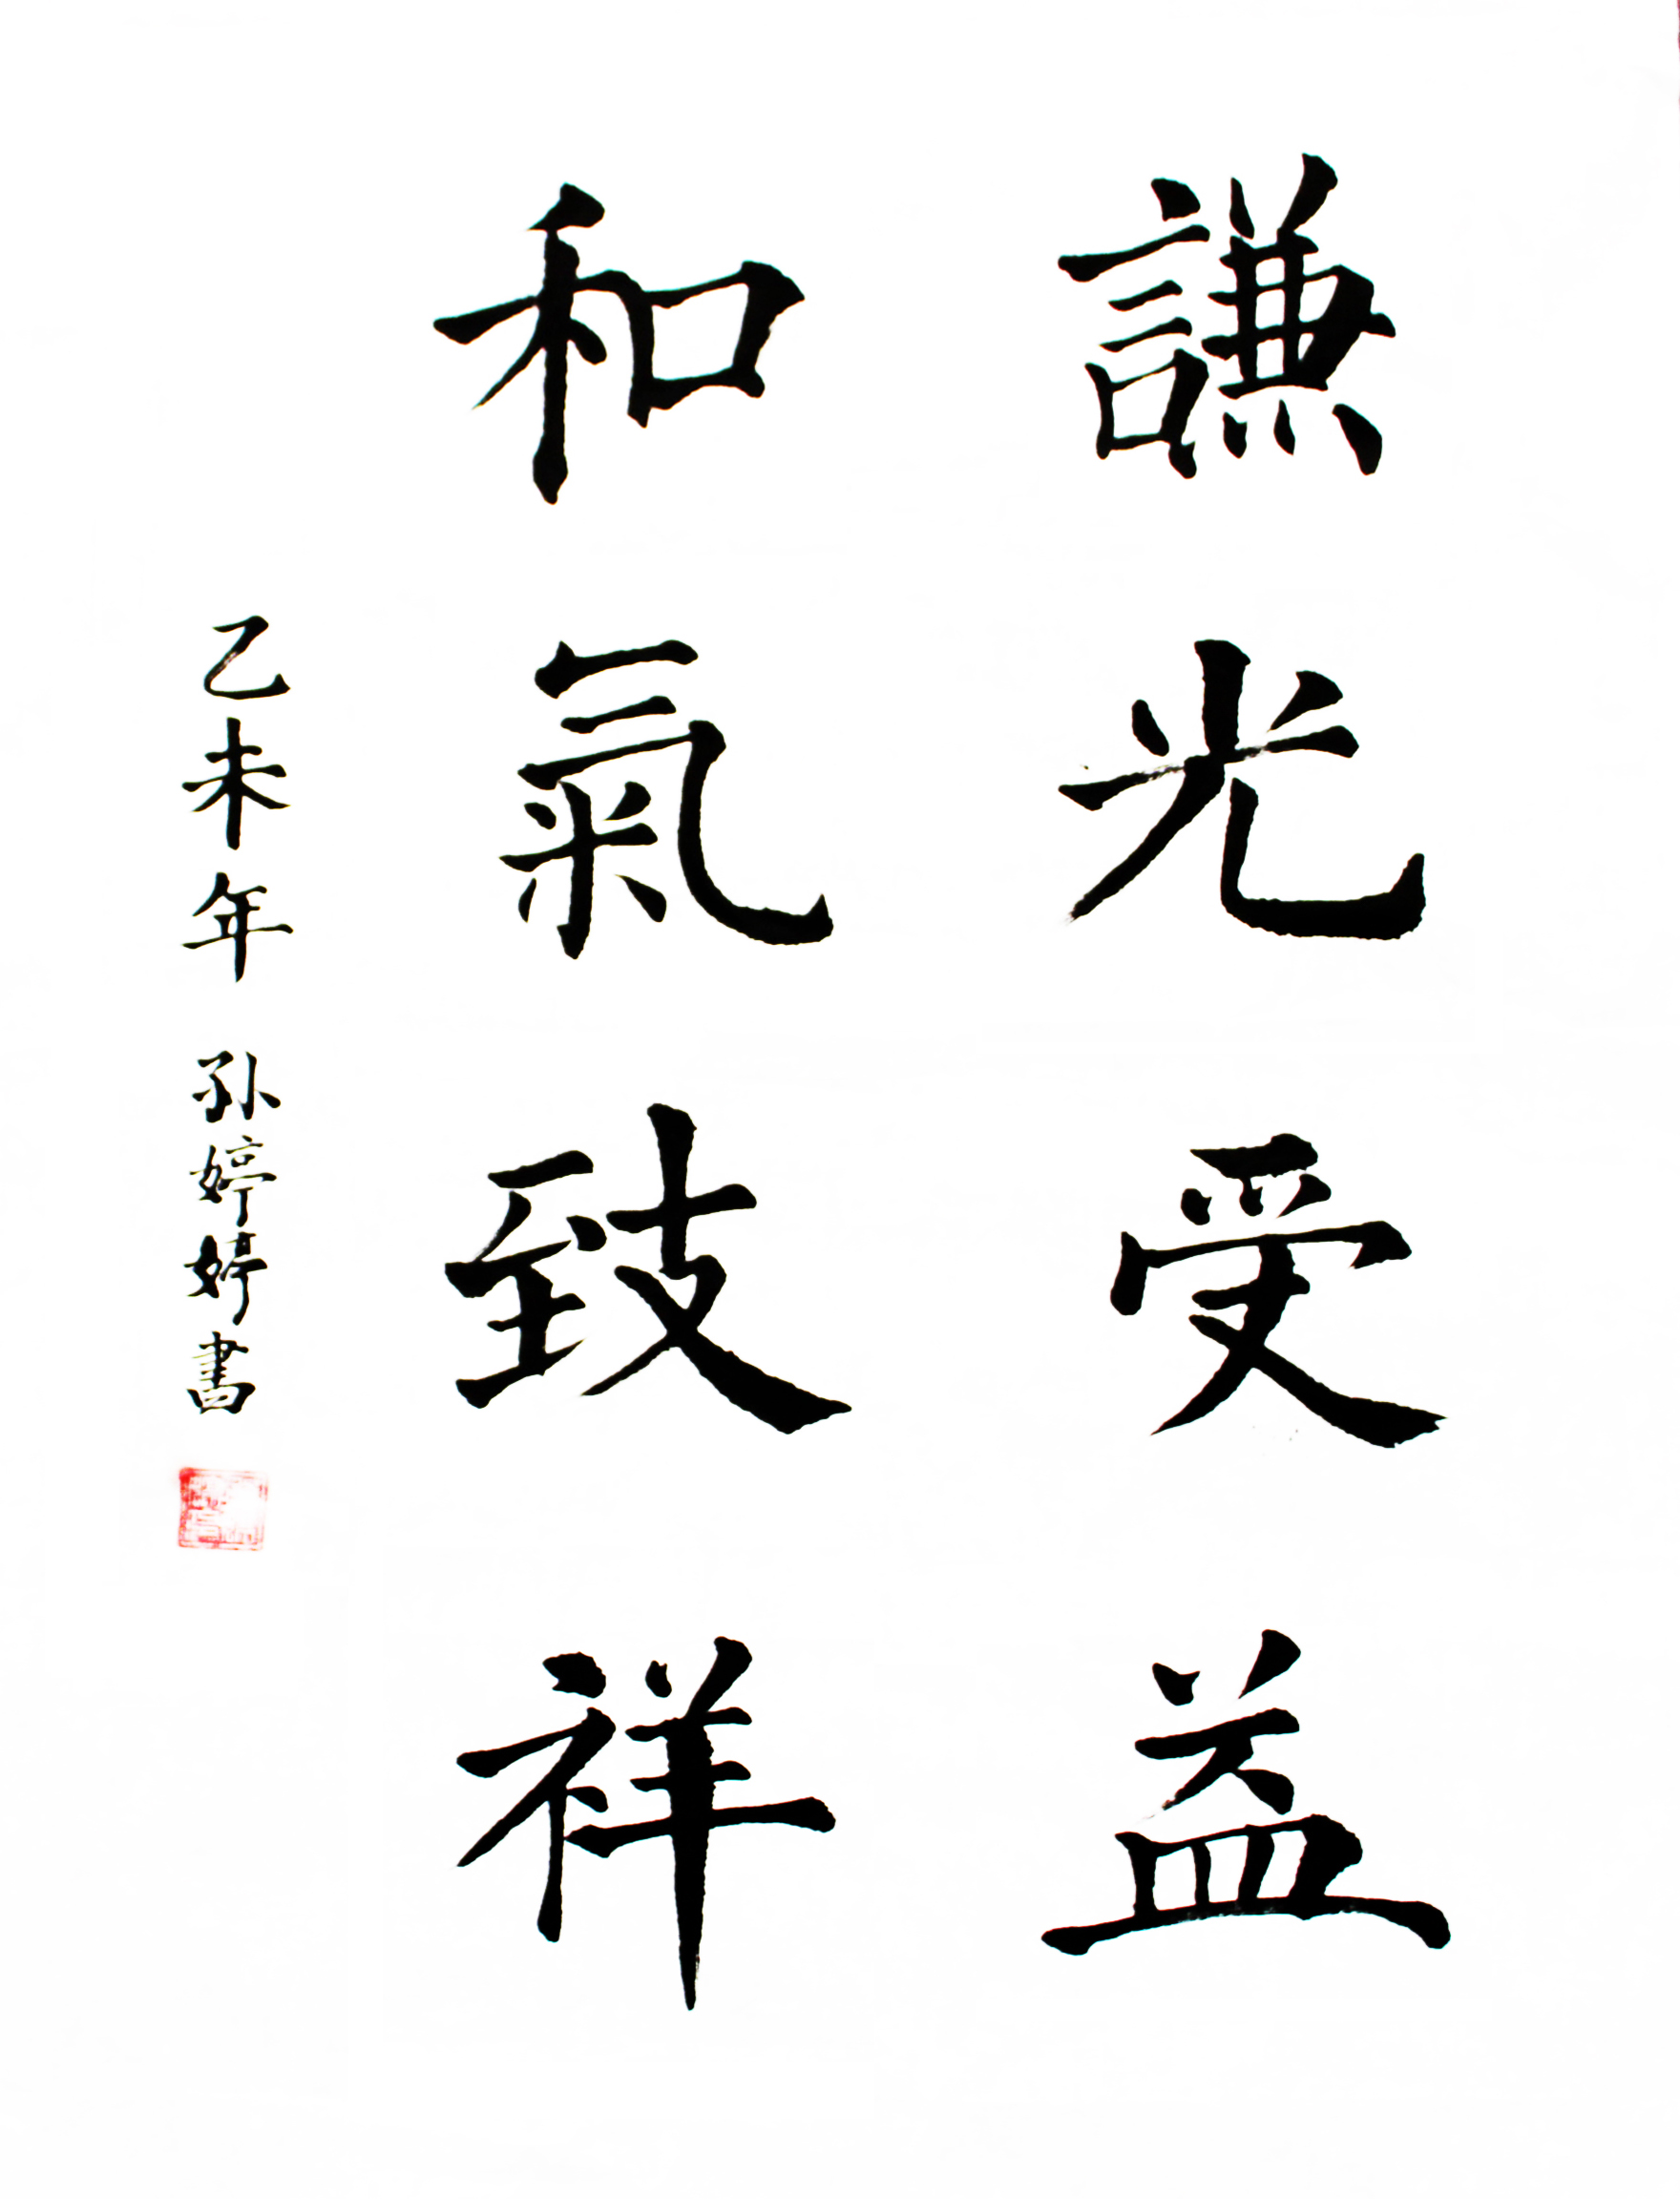 謙光受益
和氣致祥
乙未年 孙婷婷書